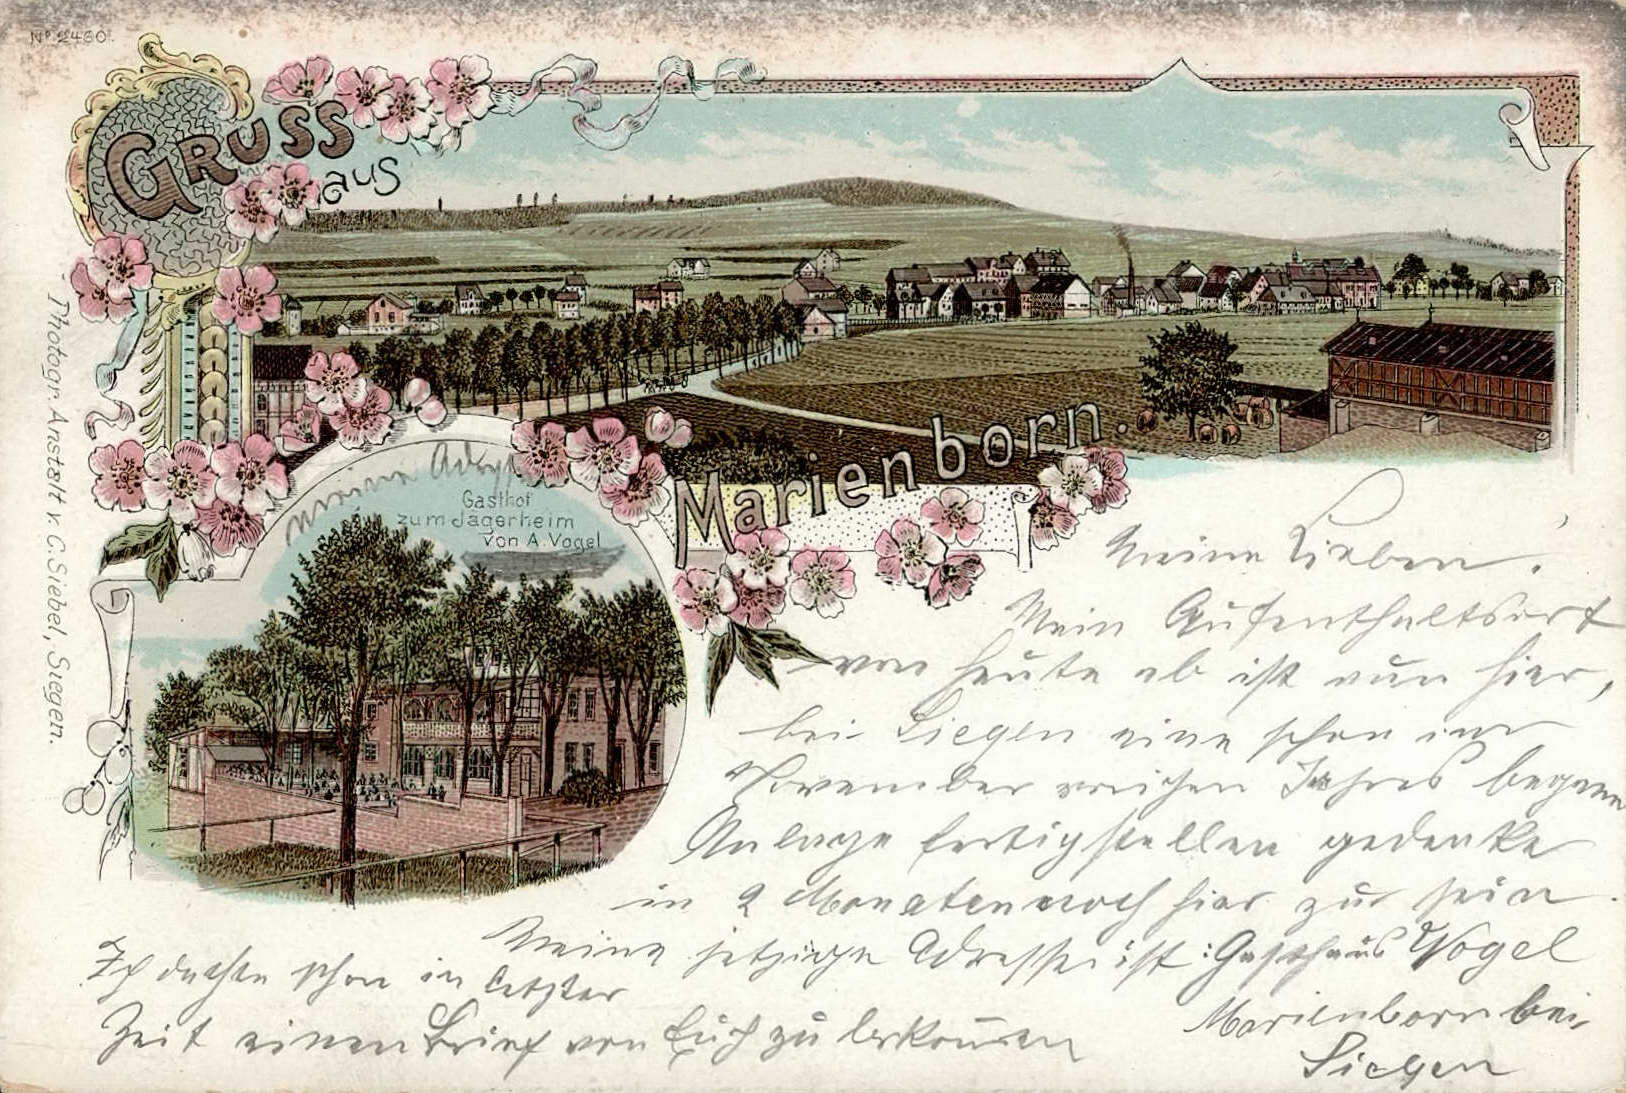 No 2460.
GRUSS
aus
Marienborn.
Photogr. Anstalt v. C. Siebel, Siegen.
meine
Gasthof
zum Jägerheim
von A. Vogel
Meine Lieben!
Mein Aufenthaltsort
von heute ab ist nun hier,
bei Siegen eine schon im
November vorigen Jahres begonnene
Anlage fertigstellen gedenke
in 2 Monaten noch hier zu sein.
Meine jetzige Adresse ist: Gasthaus Vogel
Marienborn bei
Siegen
Ich dachte schon in letzter
Zeit einen Brief von Euch zu bekommen